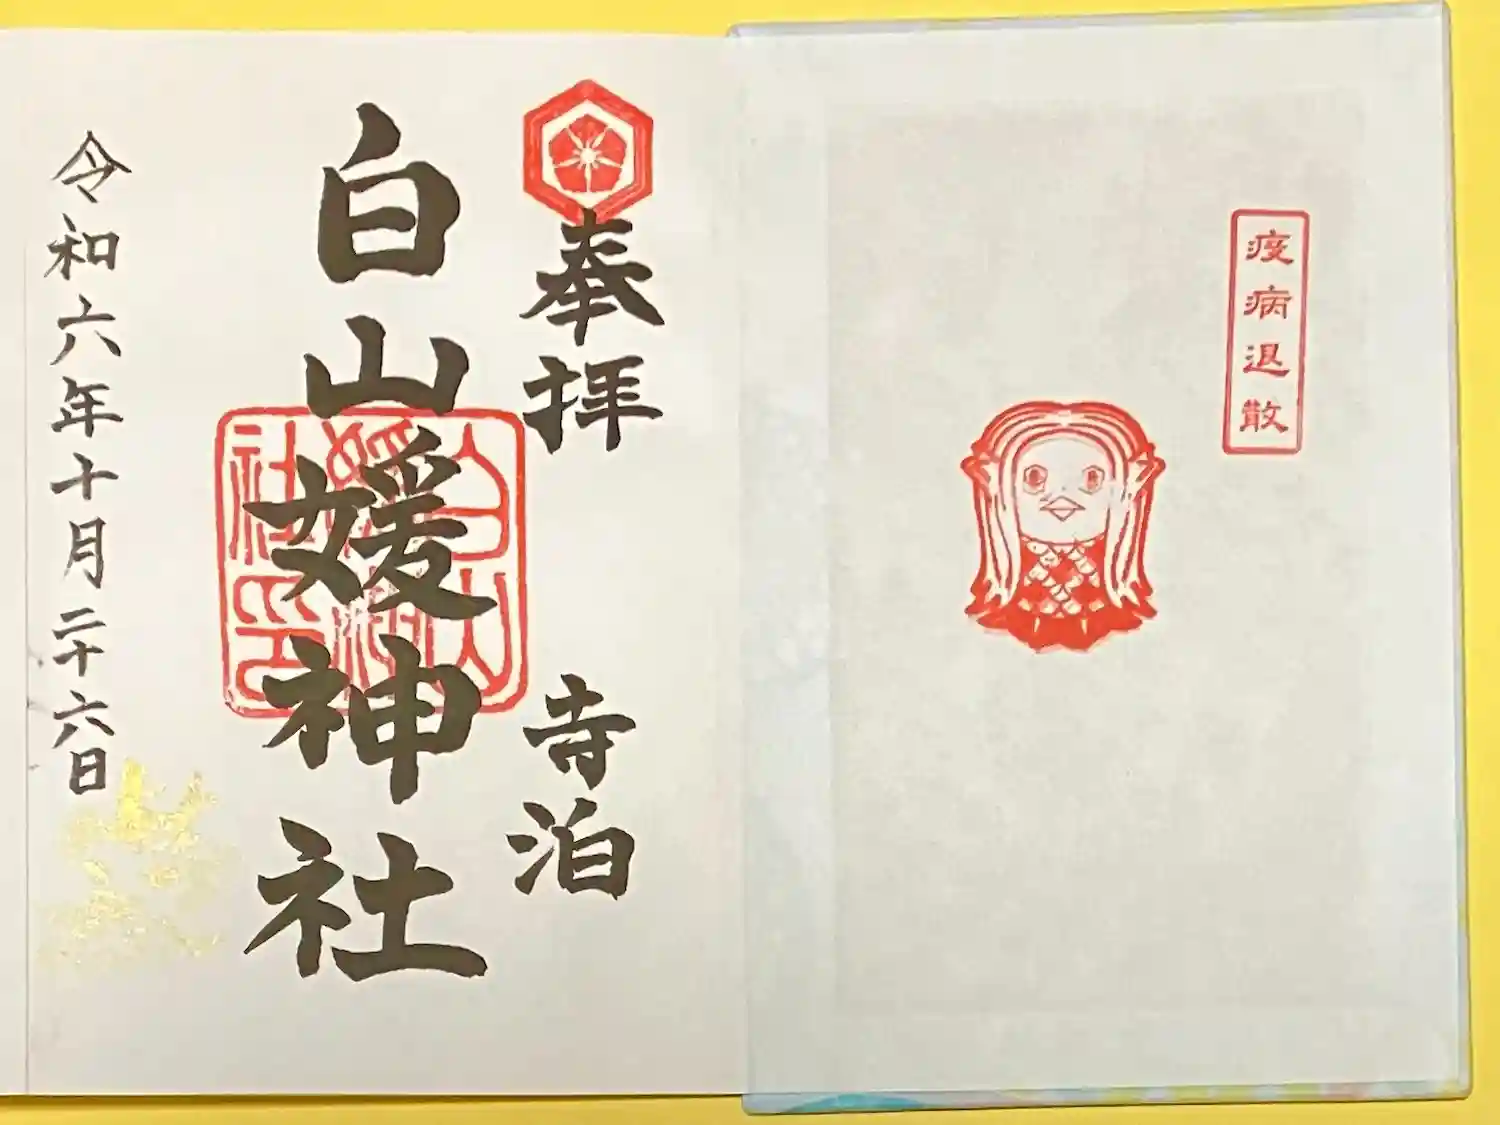 疫病退散
奉拝
寺泊
白山媛神社
白山媛神社印
令和六年十月二十六日